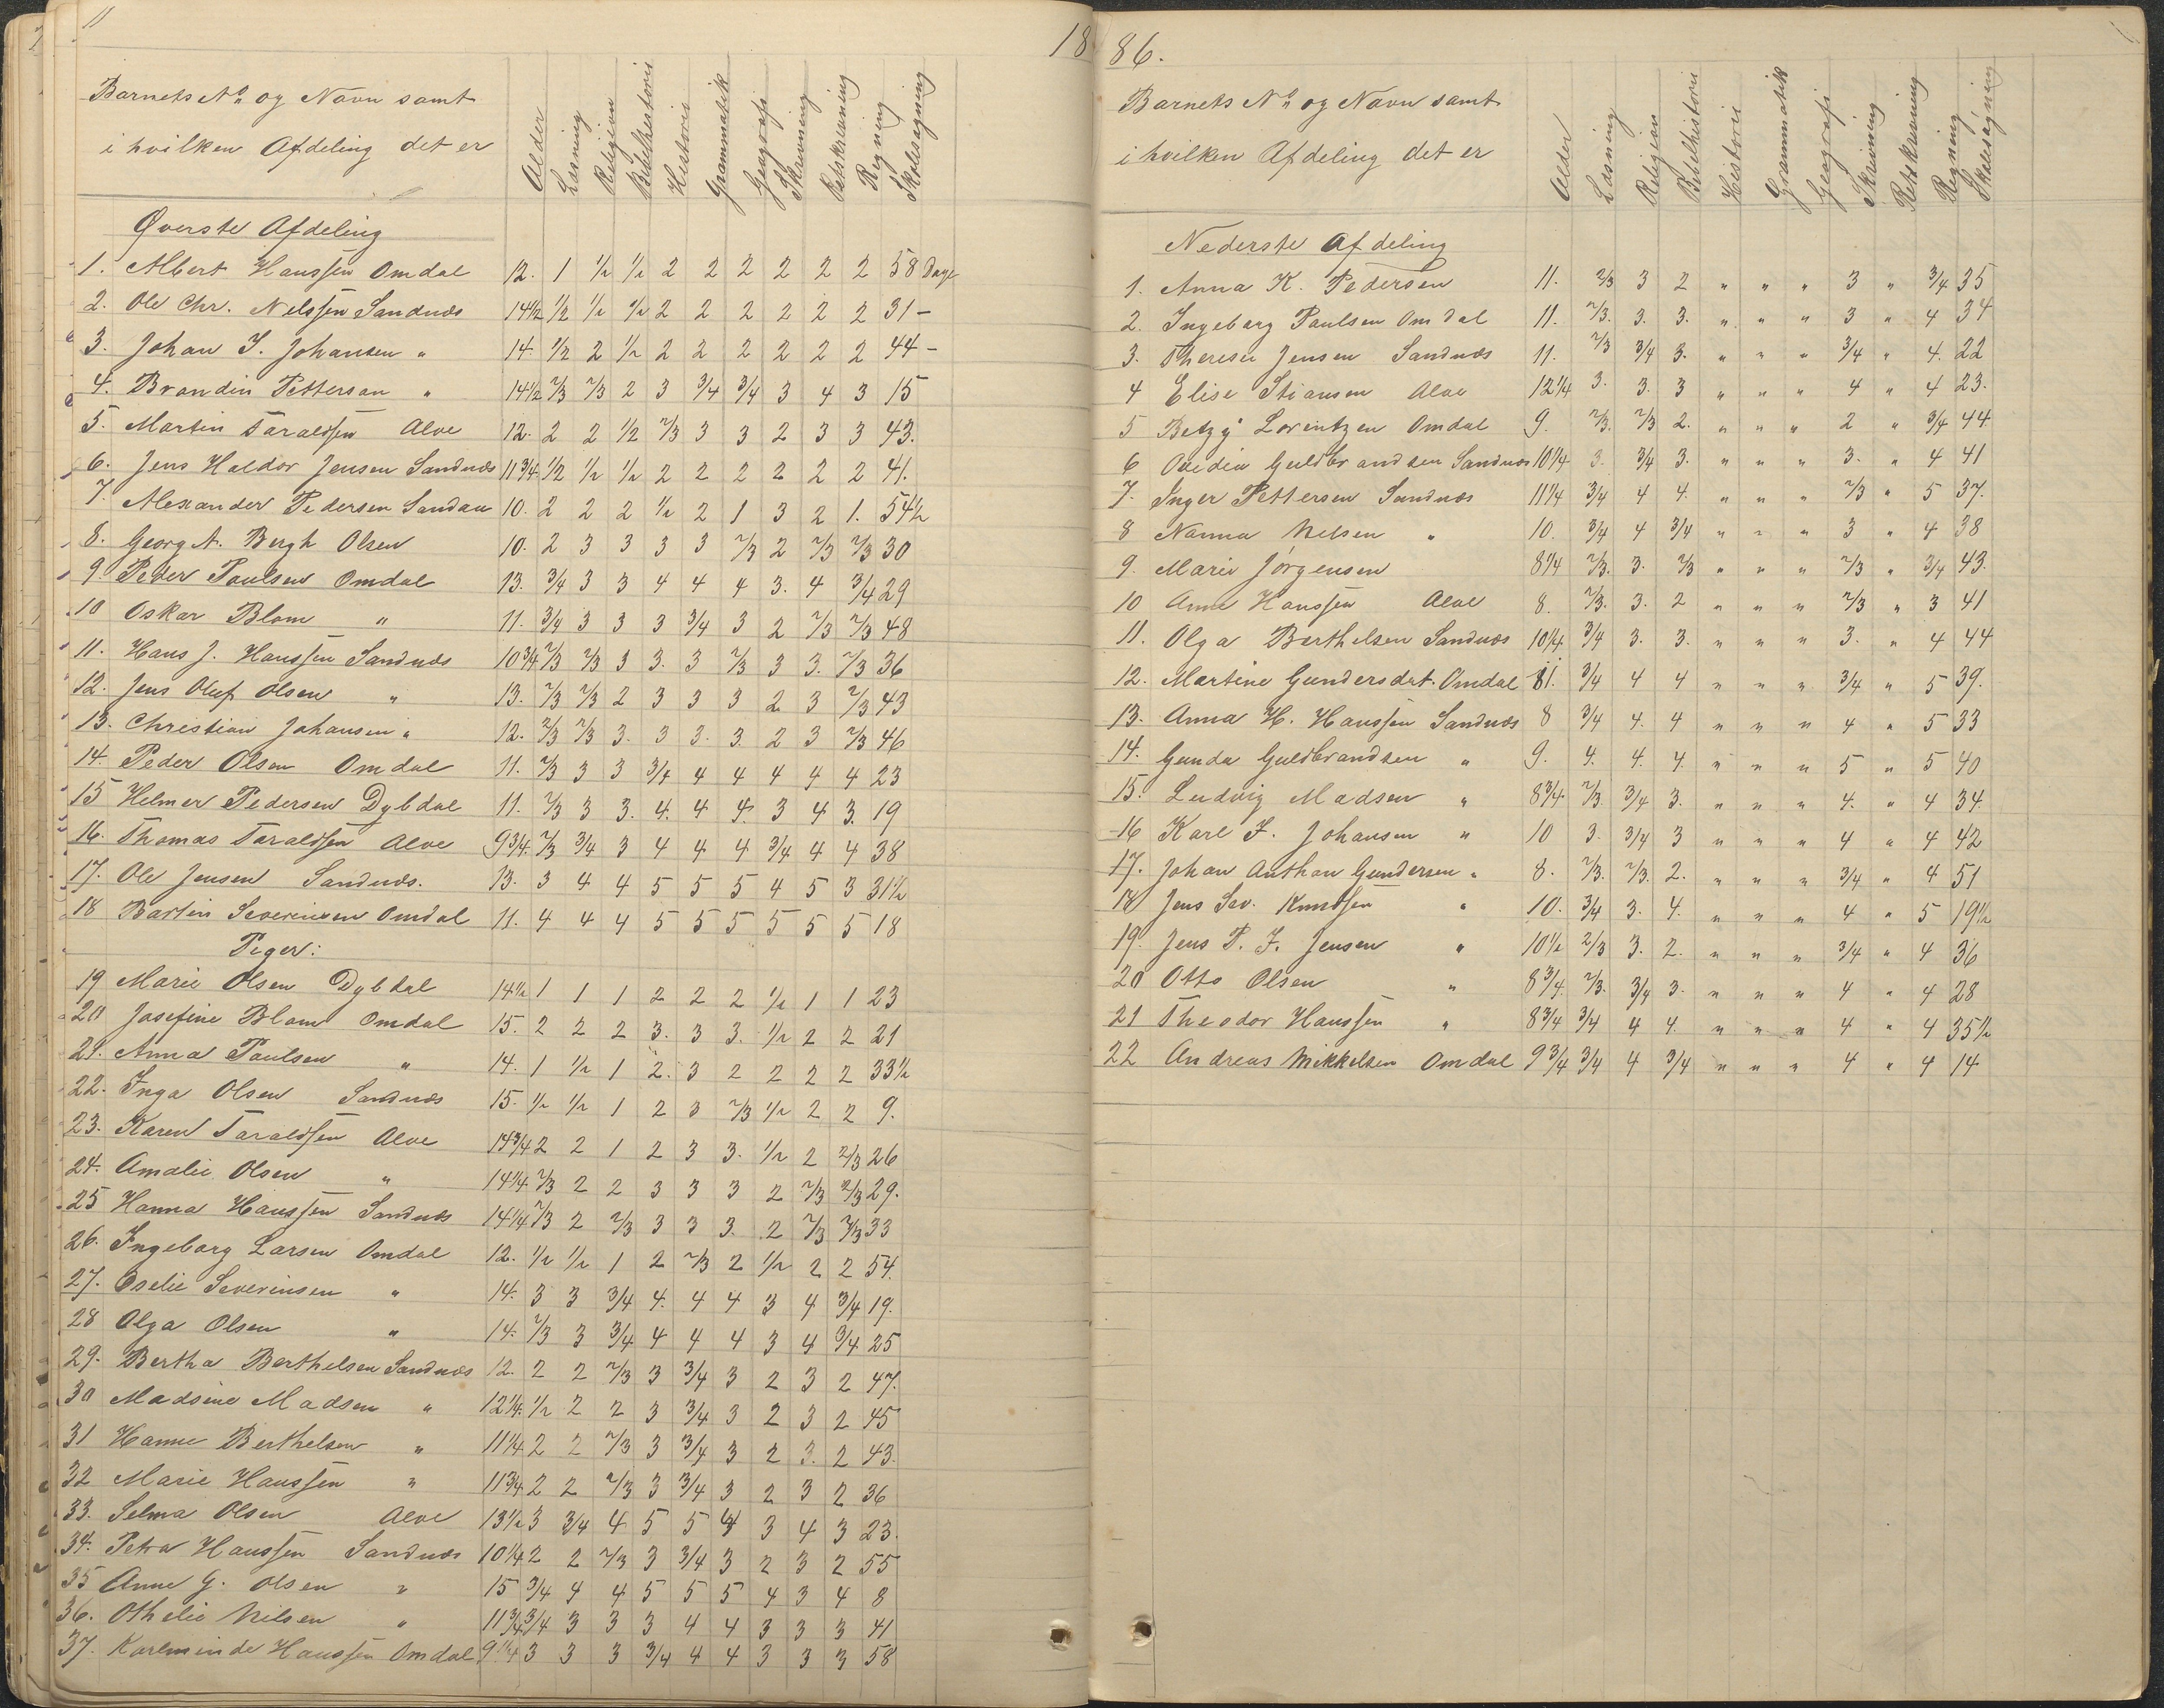 11
18
Barnets No og Navn samt
i hvilken Afdeling det er
Alder Læsning Religion Bibelhistorie Historie Grammatik Geografi Skrivning Retskrivning Regning Skolesøgning
Øverste Afdeling
1. Albert Hanssen Omdal 12. 1 1/2 1/2 2 2 2 2 2 2 58 Dage
2. Ole Chr. Nelssen Sandnæs 14 1/2 1/2 1/2 1/2 2 2 2 2 2 2 31 –
3. Johan I. Johansen " 14 1/2 2 1/2 2 2 2 2 2 2 44 –
4. Brandin Petterson " 14 1/2 2/3 2/3 2 3 3/4 3/4 3 4 3 15
5. Martin Taraldsen Alve 12. 2 2 1/2 2/3 3 3 2 3 3 43.
6. Jens Haldor Jensen Sandnæs 11 3/4 1/2 1/2 1/2 2 2 2 2 2 2 41.
7. Alexander Pedersen Sandnæs 10. 2 2 2 1/2 2 1 3 2 1. 54 1/2
8. Georg A. Bergh Olsen 10. 2 3 3 3 3 2/3 2 2/3 2/3 30
9 Peder Paulsen Omdal 13. 3/4 3 3 4 4 4 3. 4 3/4 29
10 Oskar Blom " 11. 3/4 3 3 3 3/4 3 2 2/3 2/3 48
11. Hans J. Hanssen Sandnæs 10 3/4 2/3 2/3 3 3. 3 2/3 3 3. 2/3 36
12. Jens Oluf Olsen " 13. 2/3 2/3 2 3 3 3 2 3 2/3 43
13. Christian Johansen " 12. 2/3 2/3 3. 3 3. 3. 2 3 2/3 46
14. Peder Olsen Omdal 11. 2/3 3 3 3/4 4 4 4 4 4 23
15 Helmer Pedersen Dybdal 11. 2/3 3 3. 4. 4 4. 3 4 3. 19
16. Thomas Taraldsen Alve 9 3/4. 2/3 3/4 3 4 4 4 3/4 4 4 38
17. Ole Jensen Sandnæs. 13. 3 4 4 5 5 5 4 5 3 31 1/2
18 Bartin Severinsen Omdal 11. 4 4 4 5 5 5 5 5 5 18
Piger:
19 Marie Olsen Dybdal 14 1/2 1 1 1 2 2 2 1/2 1 1 23
20 Josefine Blom Omdal 15. 2 2 2 3. 3 3. 1/2 2 2 21
21. Anna Paulsen " 14. 1 1/2 1 2. 3 2 2 2 2 33 1/2
22. Inga Olsen Sandnæs 15. 1/2 1/2 1 2 3 2/3 1/2 2 2 9.
23. Karen Taraldsen Alve 14 3/4 2 2 1 2 3 3. 1/2 2 2/3 26
24. Amalie Olsen " 14 1/4 2/3 2 2 3 3 3 2 2/3 2/3 29.
25 Hanna Hanssen Sandnæs 14 1/4 2/3 2 2/3 3 3 3. 2 2/3 2/3 33
26. Ingeborg Larsen Omdal 12. 1/2 1/2 1 2 2/3 2 1/2 2 2 54.
27. Oselie Severinsen " 14. 3 3 3/4 4. 4 4 3 4 3/4 19.
28 Olga Olsen " 14. 2/3 3 3/4 4 4 4 3 4 3/4 25
29. Bertha Berthelsen Sandnæs 12. 2 2 2/3 3 3/4 3 2 3 2 47.
30 Madsine Madsen " 12 1/4. 1/2 2 2 3 3/4 3 2 3 2 45
31 Hanne Berthelsen " 11 1/4 2 2 2/3 3 3/4 3 2 3. 2 43.
32 Marie Hanssen " 11 3/4 2 2 2/3 3 3/4 3 2 3 2 36
33. Selma Olsen Alve 13 1/2 3 3/4 4 5 5 4 3 4 3 23.
34. Petra Hanssen Sandnæs 10 1/4 2 2 2/3 3 3/4 3 2 3 2 55
35 Anne G. Olsen " 15 3/4 4 4 5 5 5 4 3 4 8
36. Othelie Nilsen " 11 3/4 3/4 3 3 3 4 4 3 3 3 41
37. Karlminde Hanssen Omdal 9 1/4 3 3 3 3/4 4 4 3 3 3 58
86.
Barnets No og Navn samt
i hvilken Afdeling det er
Alder Læsning Religion Bibelhistorie Historie Grammatik Geografi Skrivning Retskrivning Regning Skolesøgning
Nederste Afdeling
1. Anna K. Pedersen 11. 2/3 3 2 " " " 3 " 3/4 35
2. Ingeborg Paulsen Omdal 11. 2/3. 3. 3. " " " 3 " 4 34
3. Therese Jensen Sandnæs 11. 2/3 3/4 3. " " " 3/4 " 4. 22
4 Elise Stiansen Alve 12 1/4 3. 3. 3 " " " 4 " 4 23.
5 Betzy Lorentzen Omdal 9. 2/3. 2/3 2. " " " 2 " 3/4 44
6 Ovidia Guldbrandsen Sandnæs 10 1/4 3. 3/4 3. " " " 3. " 4 41
7. Inger Pettersen Sandnæs 11 1/4 3/4 4 4. " " " 2/3 " 5 37.
8 Nanna Nelsen " 10. 3/4 4 3/4 " " " 3 " 4 38
9. Marie Jørgensen 8 1/4 2/3. 3. 2/3 " " " 2/3 " 3/4 43.
10 Anna Hanssen Alve 8. 2/3. 3. 2 " " " 2/3 " 3 41
11. Olga Berthelsen Sandnæs 10 1/4 3/4 3. 3. " " " 3. " 4 44
12. Martine Gundersdat. Omdal 81. 3/4 4 4 " " " 3/4 " 5 39.
13. Anna H. Hanssen Sandnæs 8 3/4 4. 4 " " " 4 " 5 33
14. Gunda Guldbrandsen " 9. 4. 4. 4. " " " 5 " 5 40
15. Ludvig Madsen " 8 3/4. 2/3 3/4 3. " " " 4. " 4 34.
16 Karl F. Johansen " 10 3. 3/4 3 " " " 4 " 4 42
17. Johan Anthon Gundersen " 8. 2/3. 2/3. 2. " " " 3/4 " 4 51
18 Jens Sev. Knudsen " 10. 3/4 3. 4. " " " 4 " 5 19 1/2
19. Jens P. F. Jensen " 10 1/2 2/3 3. 2. " " " 3/4 " 4 36
20 Otto Olsen " 8 3/4. 2/3. 3/4 3. " " " 4 " 4 28
21 Theodor Hanssen " 8 3/4 3/4 4 4. " " " 4 " 4 35 1/2
22 Andreas Mikkelsen Omdal 9 3/4 3/4 4 3/4 " " " 4 " 4 14